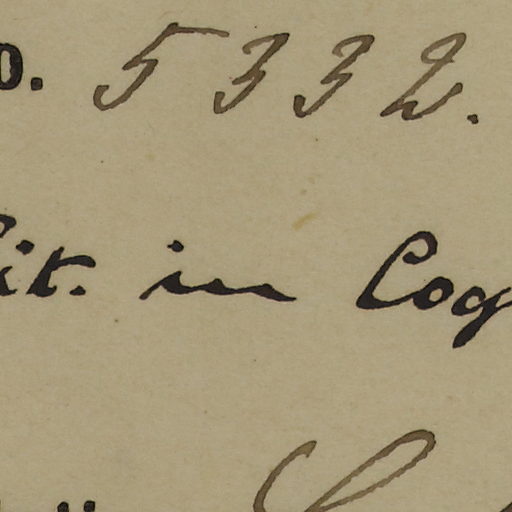 5332.
it. in Cog